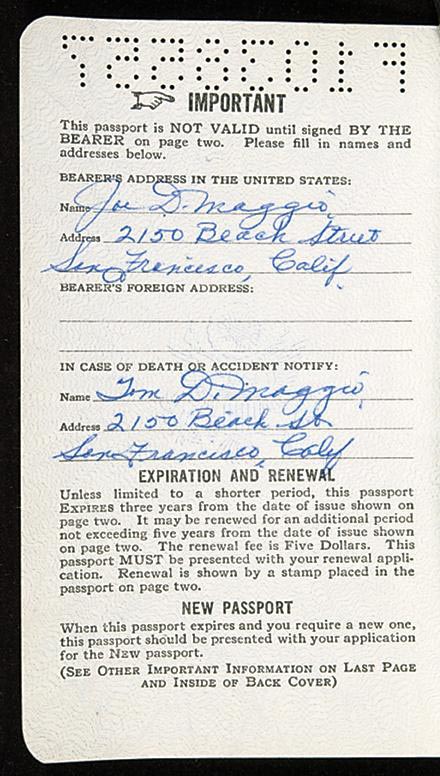 IMPORTANT
This passport is NOT VALID until signed BY THE
BEARER on page two. Please fill in names and
addresses below.
BEARER'S ADDRESS IN THE UNITED STATES:
Name Joe DiMaggio
Address 2150 Beach Street
San Francisco, Calif.
BEARER'S FOREIGN ADDRESS:
IN CASE OF DEATH OR ACCIDENT NOTIFY:
Name Tom DiMaggio
Address 2150 Beach St
San Francisco, Calif
EXPIRATION AND RENEWAL
Unless limited to a shorter period, this passport
EXPIRES three years from the date of issue shown on
page two. It may be renewed for an additional period
not exceeding five years from the date of issue shown
on page two. The renewal fee is Five Dollars. This
passport MUST be presented with your renewal appli-
cation. Renewal is shown by a stamp placed in the
passport on page two.
NEW PASSPORT
When this passport expires and you require a new one,
this passport should be presented with your application
for the NEW passport.
(SEE OTHER IMPORTANT INFORMATION ON LAST PAGE
AND INSIDE OF BACK COVER)